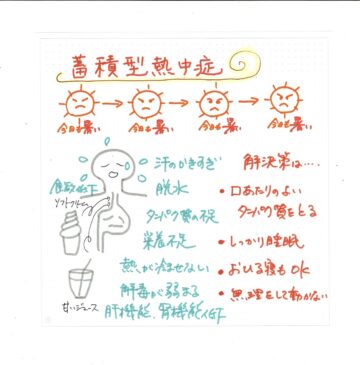 蓄積型熱中症
今日も暑い 今日も暑い 今日も暑い 今日も暑い
汗のかきすぎ
脱水
タンパク質の不足
栄養不足
熱が冷ませない
解毒が弱まる
肝機能、腎機能低下
食欲低下
ソフトクリーム
甘いジュース
解決策は……
• 口あたりのよい
タンパク質をとる
• しっかり睡眠
• おひる寝もOK
• 無理をして動かない